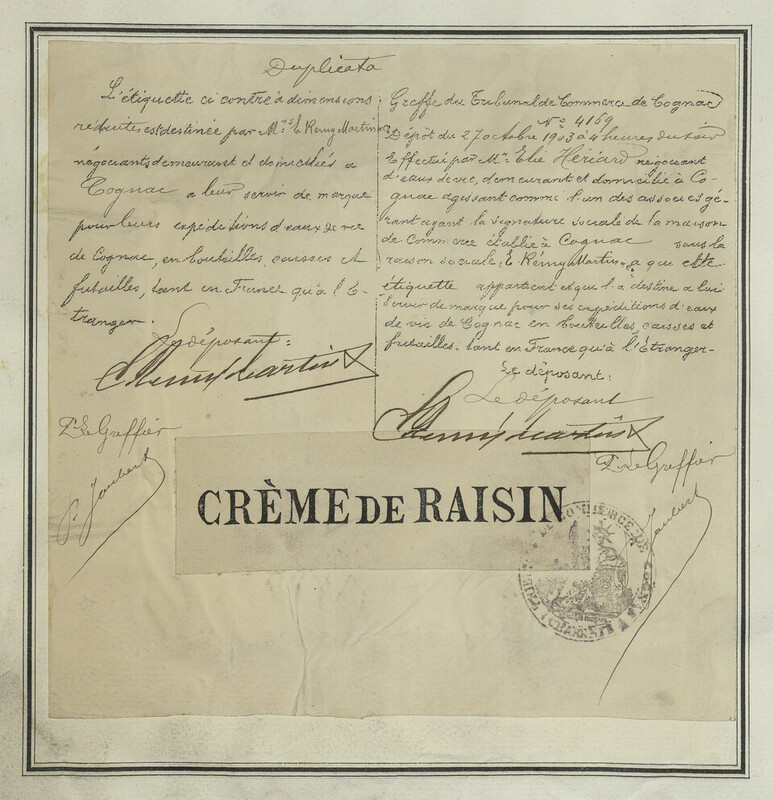 Duplicata
L'étiquette ci contre à dimensions
réduites est destinée par Mrs E. Rémy Martin
négociants demeurant et domiciliés à
Cognac a leur servir de marque
pour leurs expéditions d'eaux de vie
de Cognac, en bouteilles, caisses et
futailles, tant en France qu'à l'É-
tranger.
Le déposant:
E. Rémy Martin
P. Le Greffier
P. Jaubert
Greffe du Tribunal de Commerce de Cognac
No 4169
Dépôt du 27 octobre 1903 à 4 heures du soir
Effectué par Mr Elie Hériard négociant
d'eaux de vie, demeurant et domicilié à Co-
gnac agissant comme l'un des associés gé-
rant ayant la signature sociale de la maison
de Commerce établie à Cognac sous la
raison sociale, E. Rémy Martin a que cette
étiquette appartient et qu'il a destine a lui
servir de marque pour ses expéditions d'eaux
de vie de Cognac en bouteilles, caisses et
futailles - tant en France qu'à l'Étranger -
Le déposant:
Le déposant
E. Rémy Martin
P. Le Greffier
Jaubert
CRÈME DE RAISIN
COMMERCE DE COGNAC